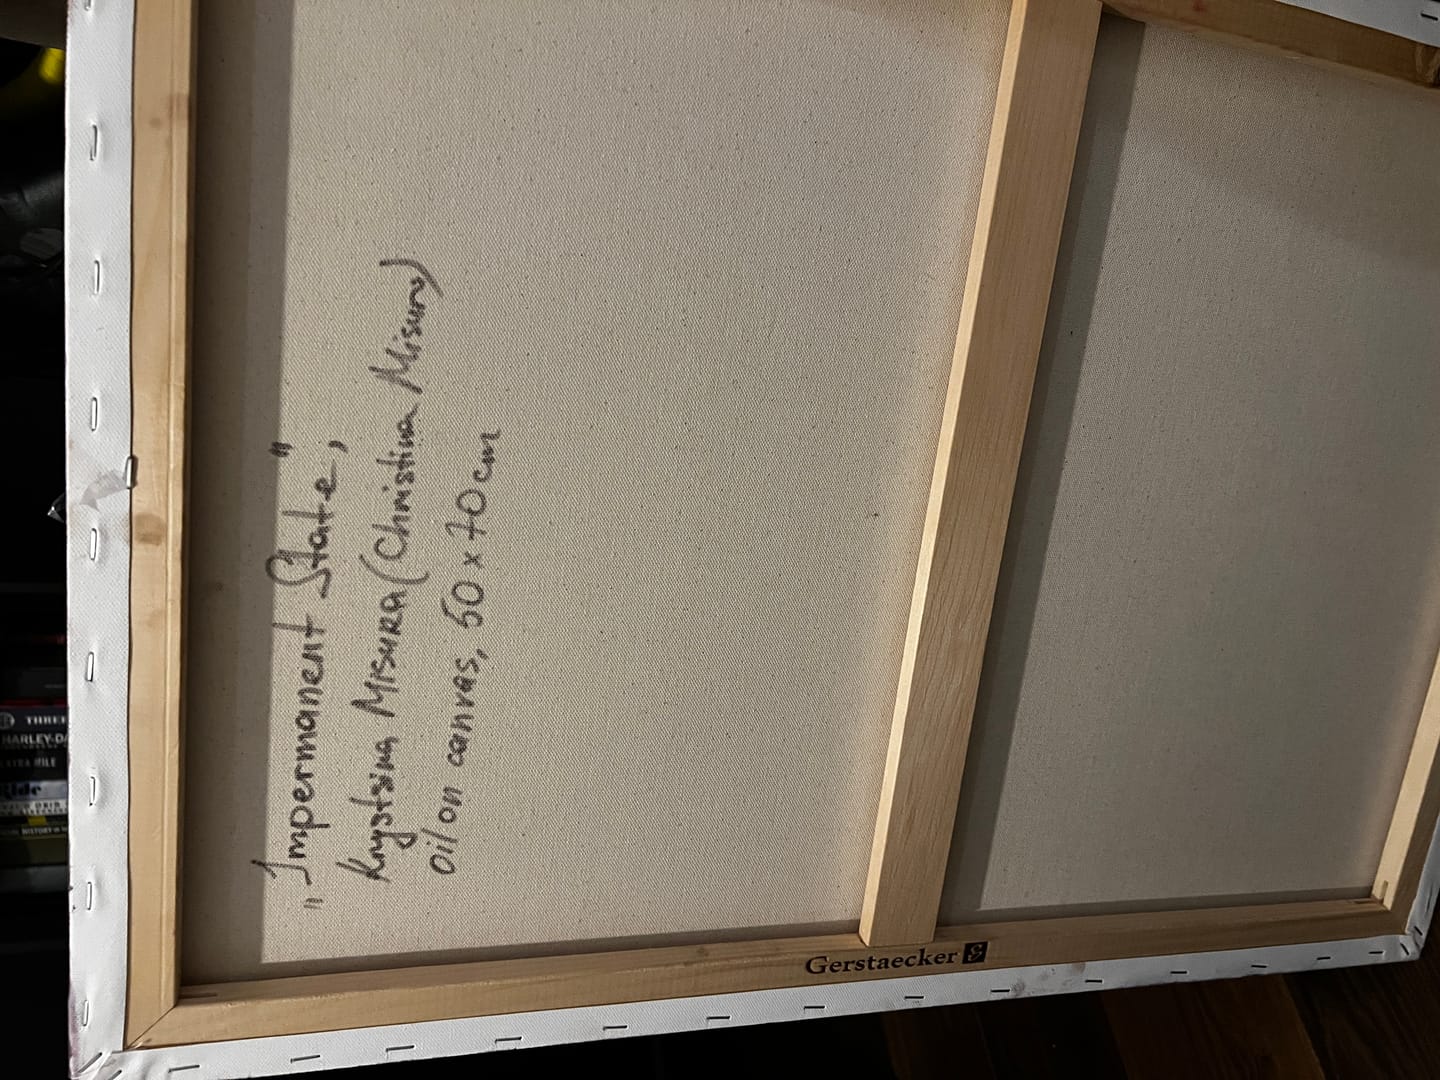 "Impermanent State",
Krystsina Misura (Christina Misura)
oil on canvas, 50 x 70 cm
Gerstaecker
THREE
HARLEY-DA
Ride
HISTORY